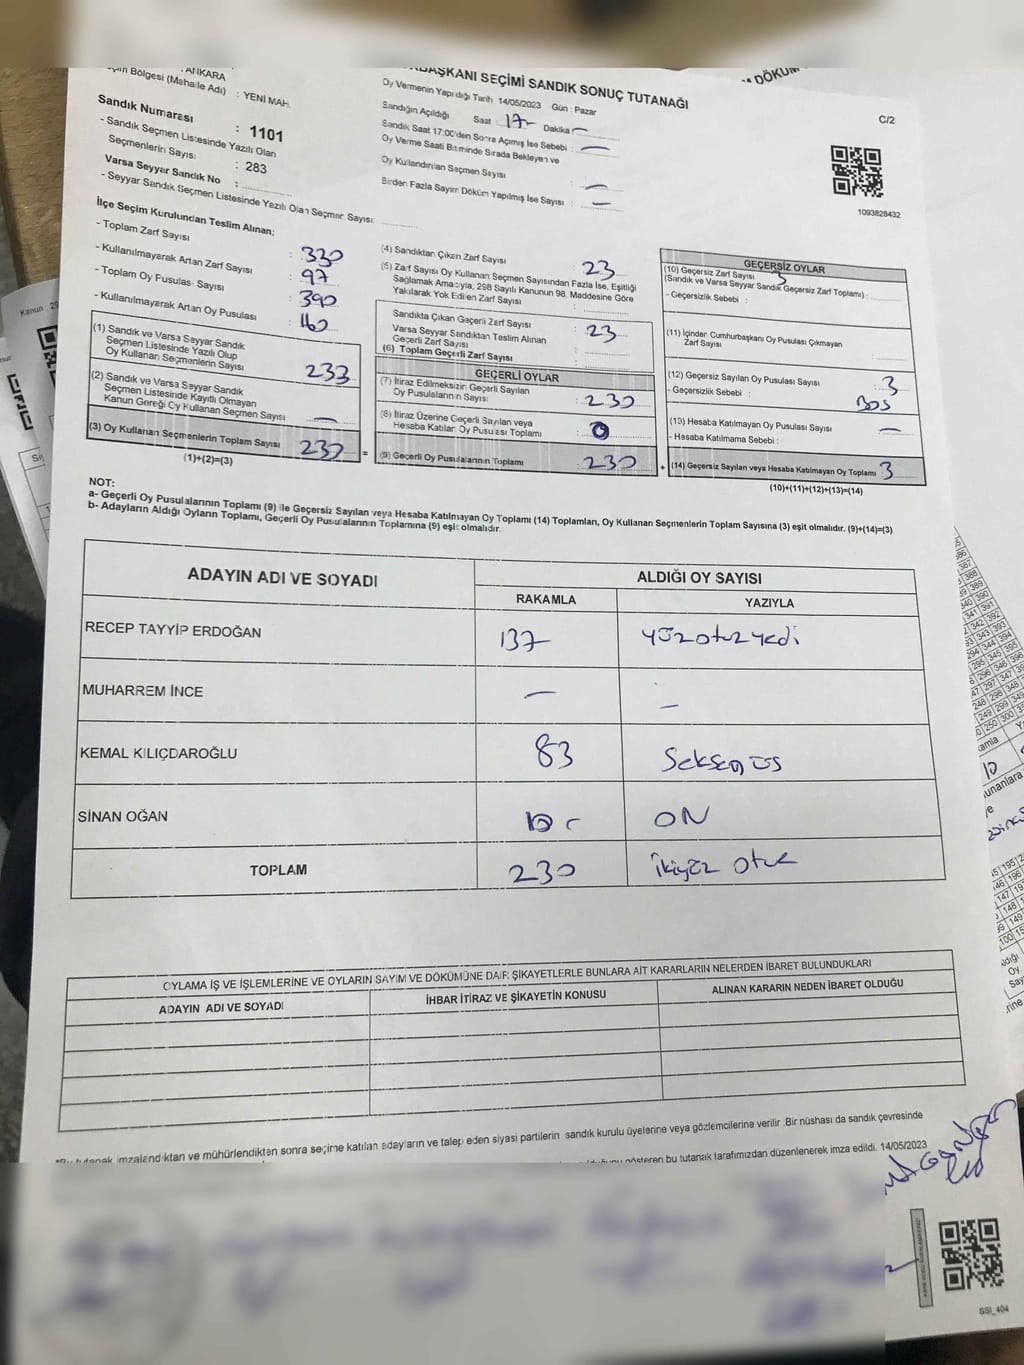 ANKARA
Bölgesi (Mahalle Adı) : YENİ MAH.
Sandık Numarası : 1101
- Sandık Seçmen Listesinde Yazılı Olan
Seçmenlerin Sayısı : 283
Varsa Seyyar Sandık No :
- Seyyar Sandık Seçmen Listesinde Yazılı Olan Seçmen Sayısı:
BAŞKANI SEÇİMİ SANDIK SONUÇ TUTANAĞI
DÖKÜM
Oy Vermenin Yapıldığı Tarih 14/05/2023 Gün : Pazar
Sandığın Açıldığı Saat : 17- Dakika -
Sandık Saat 17:00'den Sonra Açımış İse Sebebi : -
Oy Verme Saati Bitiminde Sırada Bekleyen ve
Oy Kullandırılan Seçmen Sayısı : -
Birden Fazla Sayım Döküm Yapılmış İse Sayısı : -
C/2
1093828432
İlçe Seçim Kurulundan Teslim Alınan;
- Toplam Zarf Sayısı : 330
- Kullanılmayarak Artan Zarf Sayısı : 97
- Toplam Oy Pusulası Sayısı : 390
- Kullanılmayarak Artan Oy Pusulası : 160
(1) Sandık ve Varsa Seyyar Sandık
Seçmen Listesinde Yazılı Olup
Oy Kullanan Seçmenlerin Sayısı : 233
(2) Sandık ve Varsa Seyyar Sandık
Seçmen Listesinde Kayıtlı Olmayan
Kanun Gereği Oy Kullanan Seçmen Sayısı : -
(3) Oy Kullanan Seçmenlerin Toplam Sayısı
(1)+(2)=(3)
=
(4) Sandıktan Çıkan Zarf Sayısı : 23
(5) Zarf Sayısı Oy Kullanan Seçmen Sayısından Fazla İse, Eşitliği
Sağlamak Amacıyla, 298 Sayılı Kanunun 98. Maddesine Göre
Yakılarak Yok Edilen Zarf Sayısı :
Sandıkta Çıkan Geçerli Zarf Sayısı : 23
Varsa Seyyar Sandıktan Teslim Alınan
Geçerli Zarf Sayısı :
(6) Toplam Geçerli Zarf Sayısı :
GEÇERLİ OYLAR
(7) İtiraz Edilmeksizin Geçerli Sayılan
Oy Pusulalarının Sayısı : 230
(8) İtiraz Üzerine Geçerli Sayılan veya
Hesaba Katılan Oy Pusulası Toplamı : 0
(9) Geçerli Oy Pusulalarının Toplamı : 230
+
GEÇERSİZ OYLAR
(10) Geçersiz Zarf Sayısı : 3
(Sandık ve Varsa Seyyar Sandık Geçersiz Zarf Toplamı) :
- Geçersizlik Sebebi :
(11) İçinden Cumhurbaşkanı Oy Pusulası Çıkmayan
Zarf Sayısı :
(12) Geçersiz Sayılan Oy Pusulası Sayısı : 3
- Geçersizlik Sebebi : BOS
(13) Hesaba Katılmayan Oy Pusulası Sayısı : -
- Hesaba Katılmama Sebebi :
(14) Geçersiz Sayılan veya Hesaba Katılmayan Oy Toplamı : 3
(10)+(11)+(12)+(13)=(14)
NOT:
a- Geçerli Oy Pusulalarının Toplamı (9) ile Geçersiz Sayılan veya Hesaba Katılmayan Oy Toplamı (14) Toplamları, Oy Kullanan Seçmenlerin Toplam Sayısına (3) eşit olmalıdır. (9)+(14)=(3)
b- Adayların Aldığı Oyların Toplamı, Geçerli Oy Pusulalarının Toplamına (9) eşit olmalıdır.
ADAYIN ADI VE SOYADI
ALDIĞI OY SAYISI
RAKAMLA YAZIYLA
RECEP TAYYİP ERDOĞAN 137 yüzotuzyedi
MUHARREM İNCE - -
KEMAL KILIÇDAROĞLU 83 Seksenüs
SİNAN OĞAN 10 ON
TOPLAM 230 ikiyüz otuz
OYLAMA İŞ VE İŞLEMLERİNE VE OYLARIN SAYIM VE DÖKÜMÜNE DAİR ŞİKAYETLERLE BUNLARA AİT KARARLARIN NELERDEN İBARET BULUNDUKLARI
ADAYIN ADI VE SOYADI
İHBAR İTİRAZ VE ŞİKAYETİN KONUSU
ALINAN KARARIN NEDEN İBARET OLDUĞU
tutanak imzalandıktan ve mühürlendikten sonra seçime katılan adayların ve talep eden siyasi partilerin sandık kurulu üyelerine veya gözlemcilerine verilir. Bir nüshası da sandık çevresinde
gösteren bu tutanak tarafımızdan düzenlenerek imza edildi. 14/05/2023
SSI_404